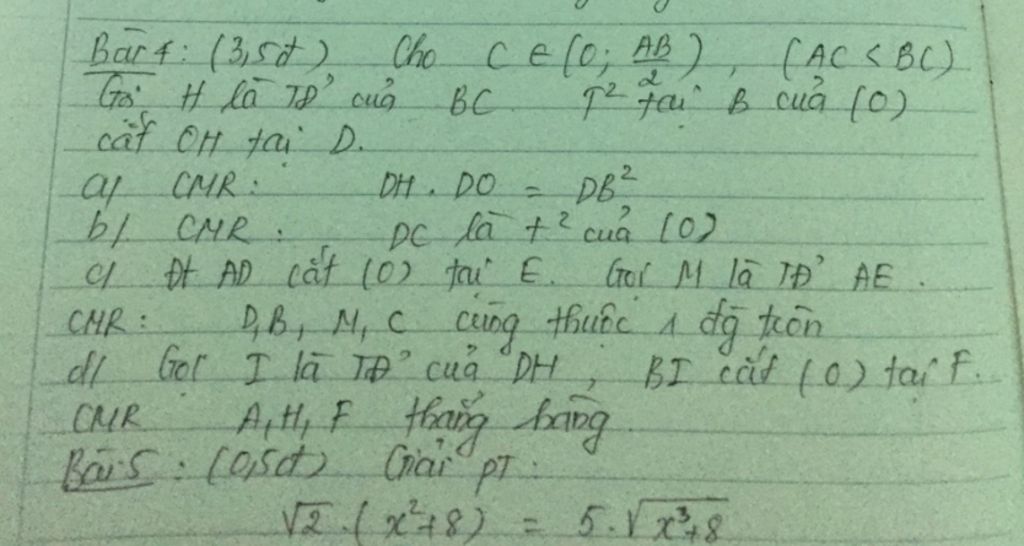 Bài 4: (3,5đ) Cho C ∈ (O; AB/2), (AC < BC)
Gọi H là TĐ' của BC. T² tại B của (O)
cắt OH tại D.
a/ CMR: DH . DO = DB²
b/. CMR: DC là t² của (O)
c/ Đt AD cắt (O) tại E. Gọi M là TĐ' AE.
CMR: D, B, M, C cùng thuộc 1 đg tròn
d/ Gọi I là TĐ' của DH, BI cắt (O) tại F.
CMR A, H, F thẳng hàng.
Bài 5: (0,5đ) Giải PT:
√2 . (x²+8) = 5 . √x³+8